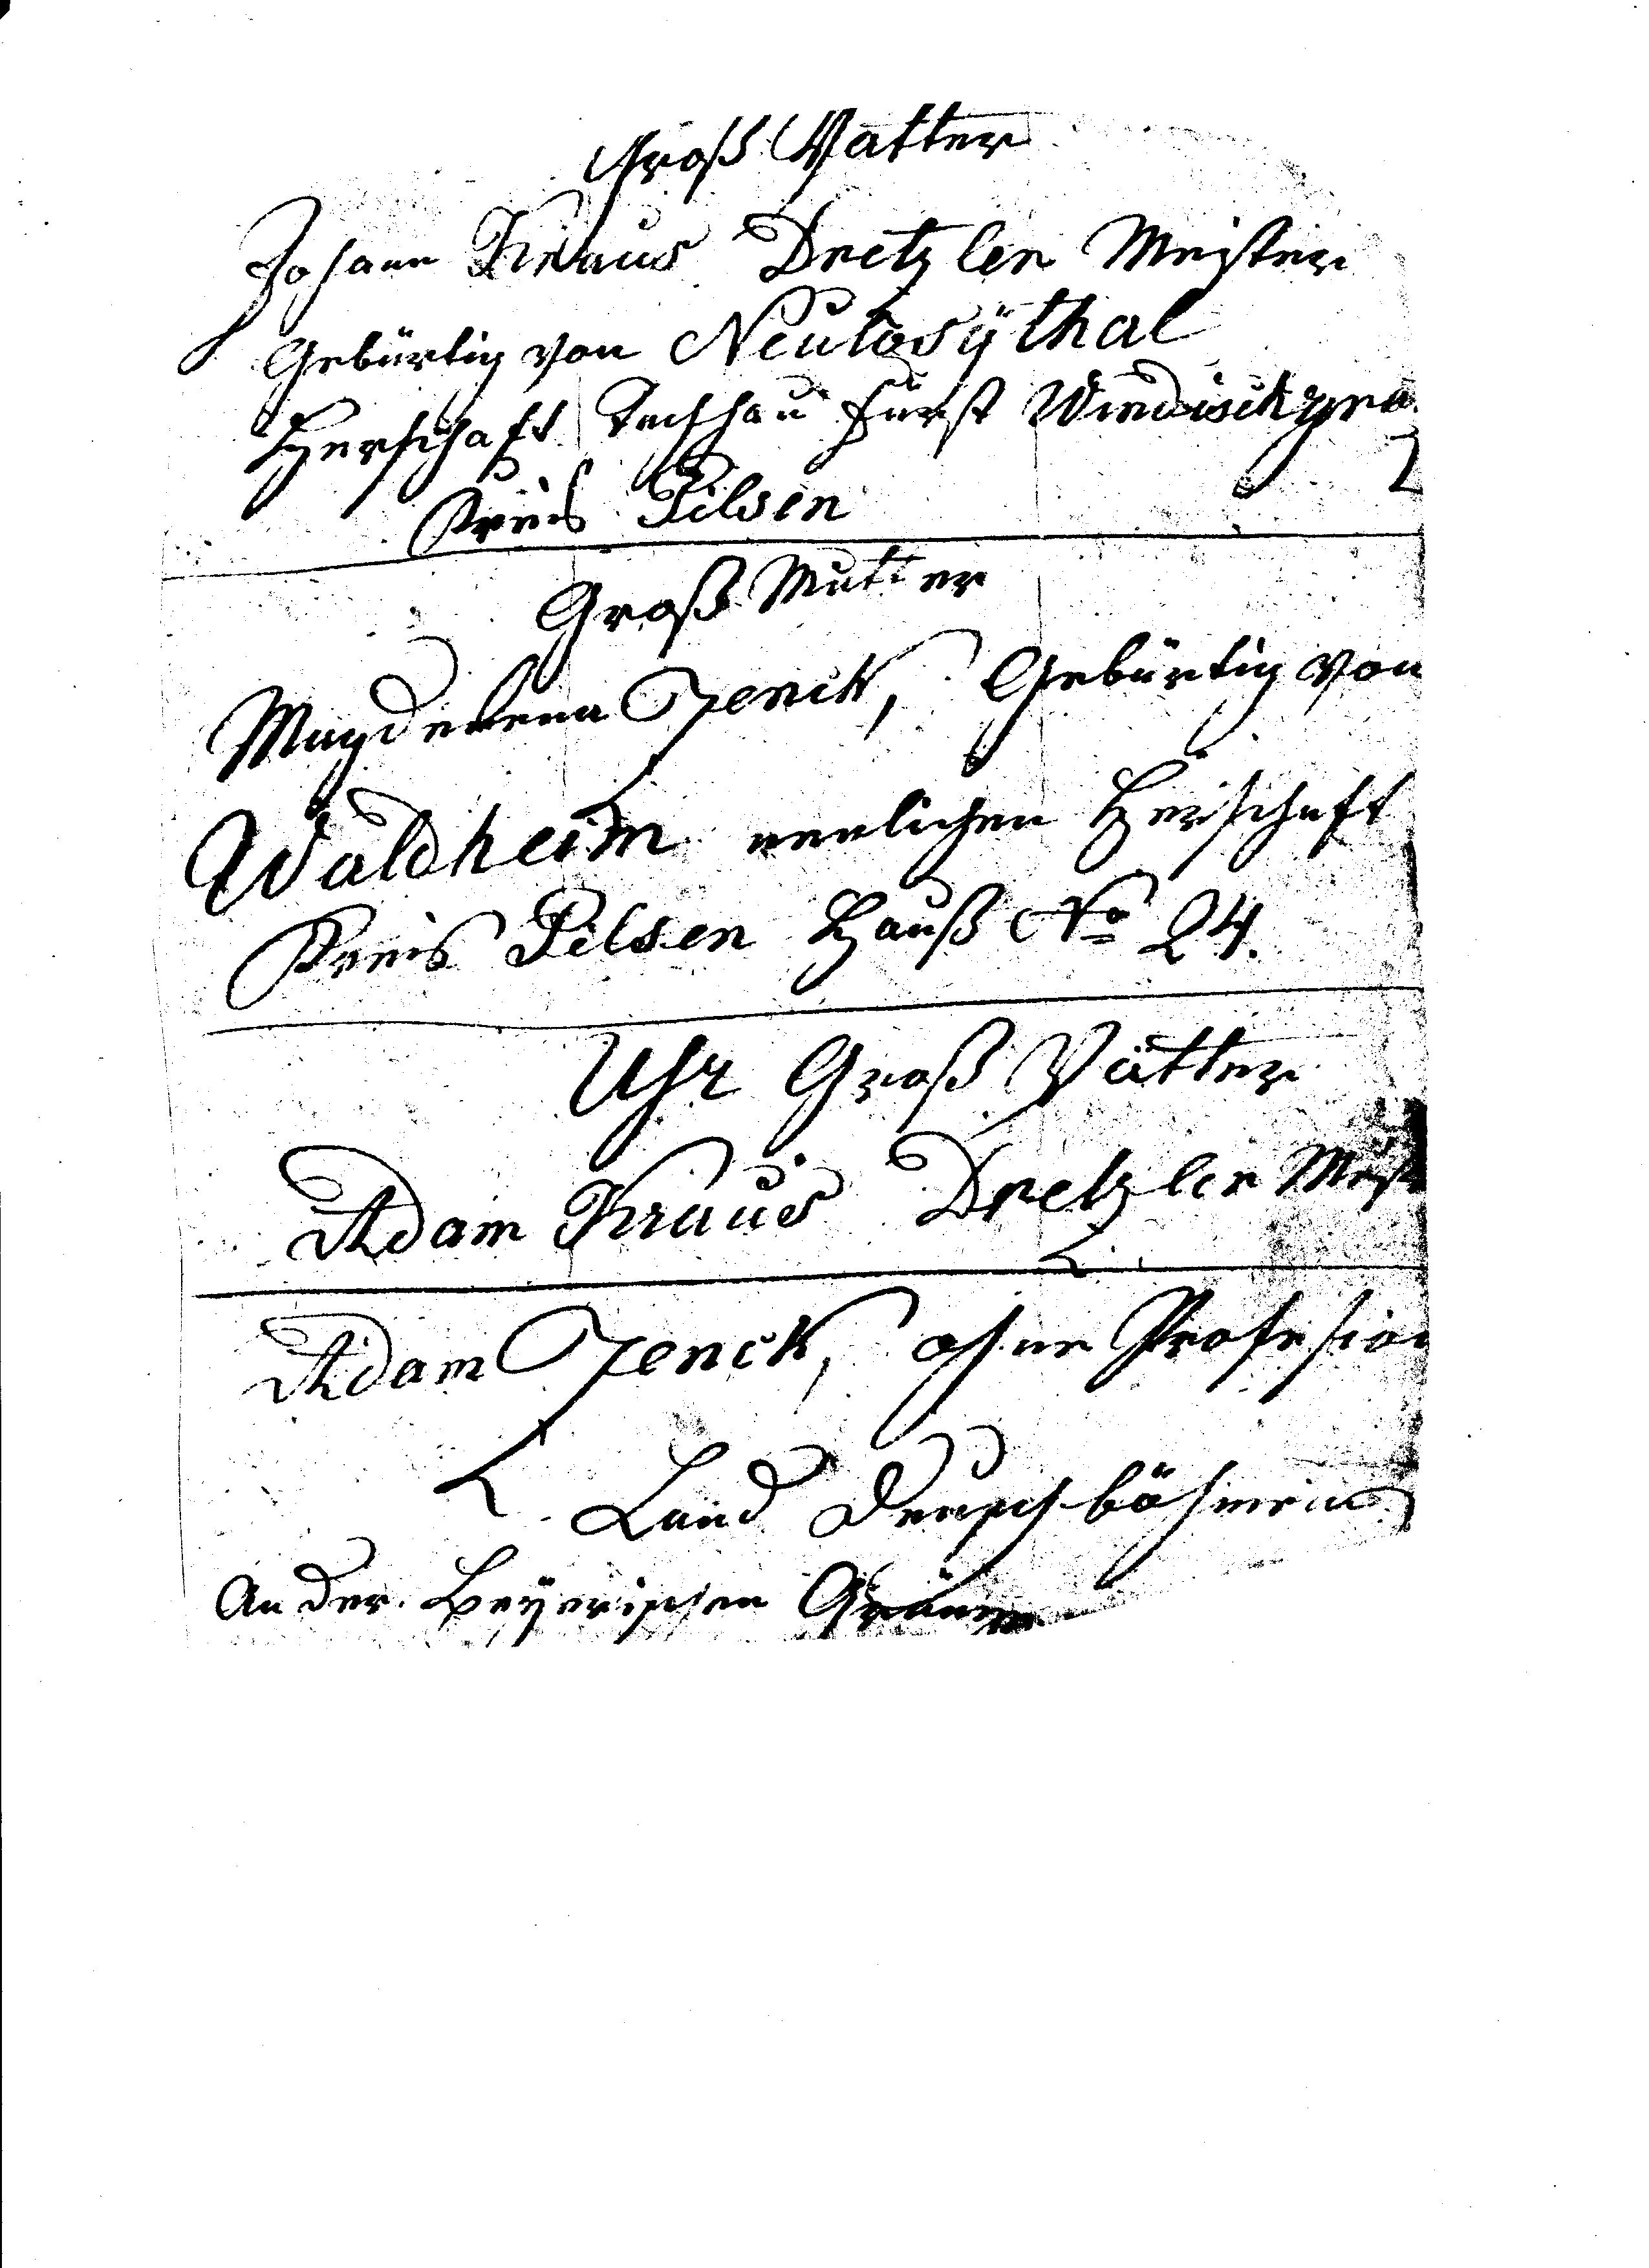 Groß Vatter
Johann Kraus Dretzler Meister
Gebürtig von Neulosÿthal
Herschaft Tachau Fürst Windischgrä
z
Kreis Pilsen
Groß Mutter
Magdelena Zenck, Gebürtig von
Waldheim nemlichen Herschaft
Kreis Pilsen Hauß No 24.
Uhr Groß Vätter
Adam Kraus Dretzler Meist
Adam Zenck, ohne Profesion
Land Deutschböhmen
An der Beÿerischen Gränze